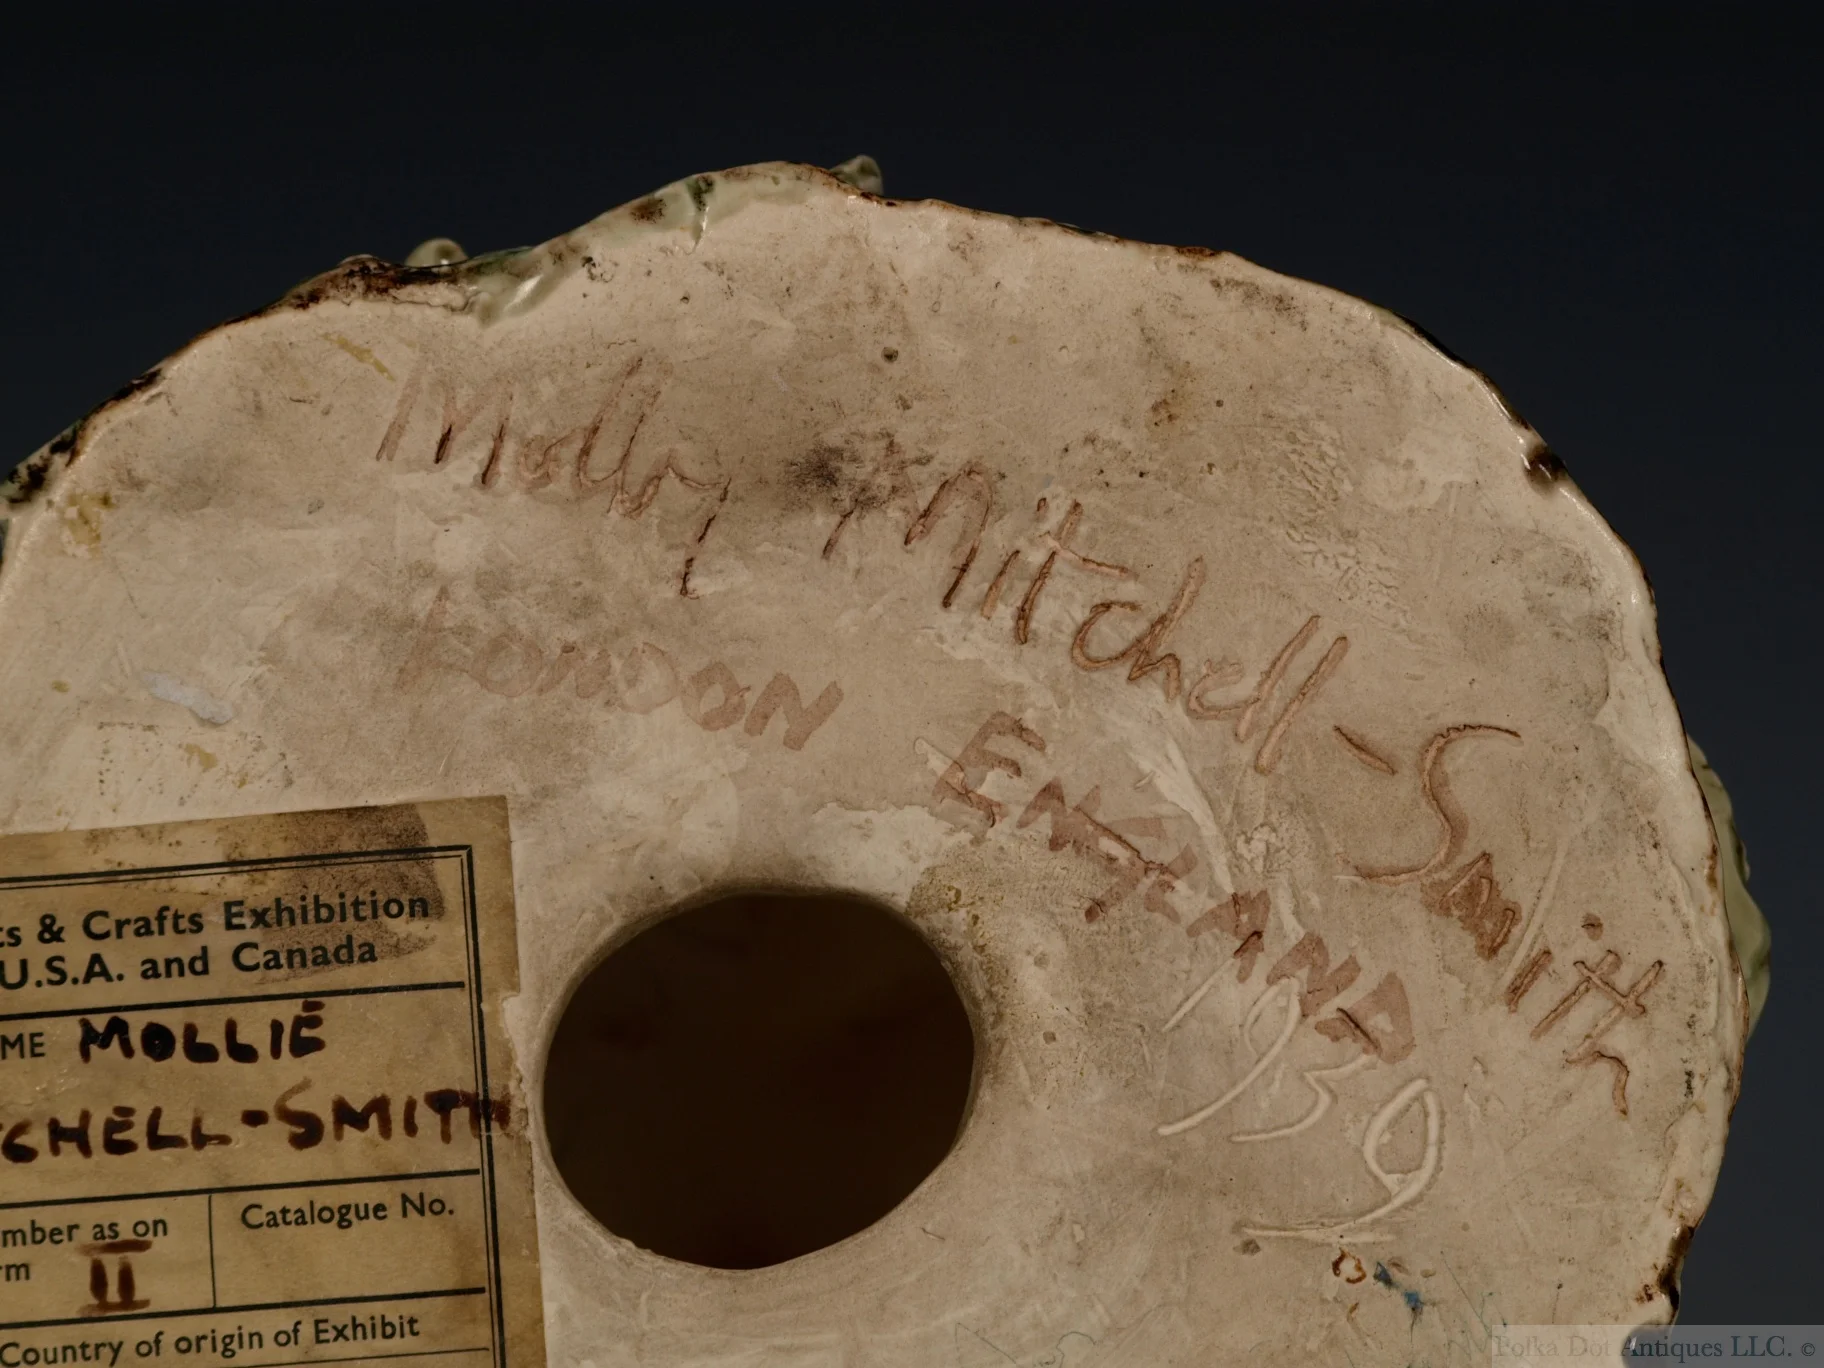 Molly Mitchell-Smith
LONDON ENGLAND
1939
ts & Crafts Exhibition
U.S.A. and Canada
ME MOLLIE
TCHELL-SMITH
mber as on
rm II
Catalogue No.
Country of origin of Exhibit
Polka Dot Antiques LLC. ©